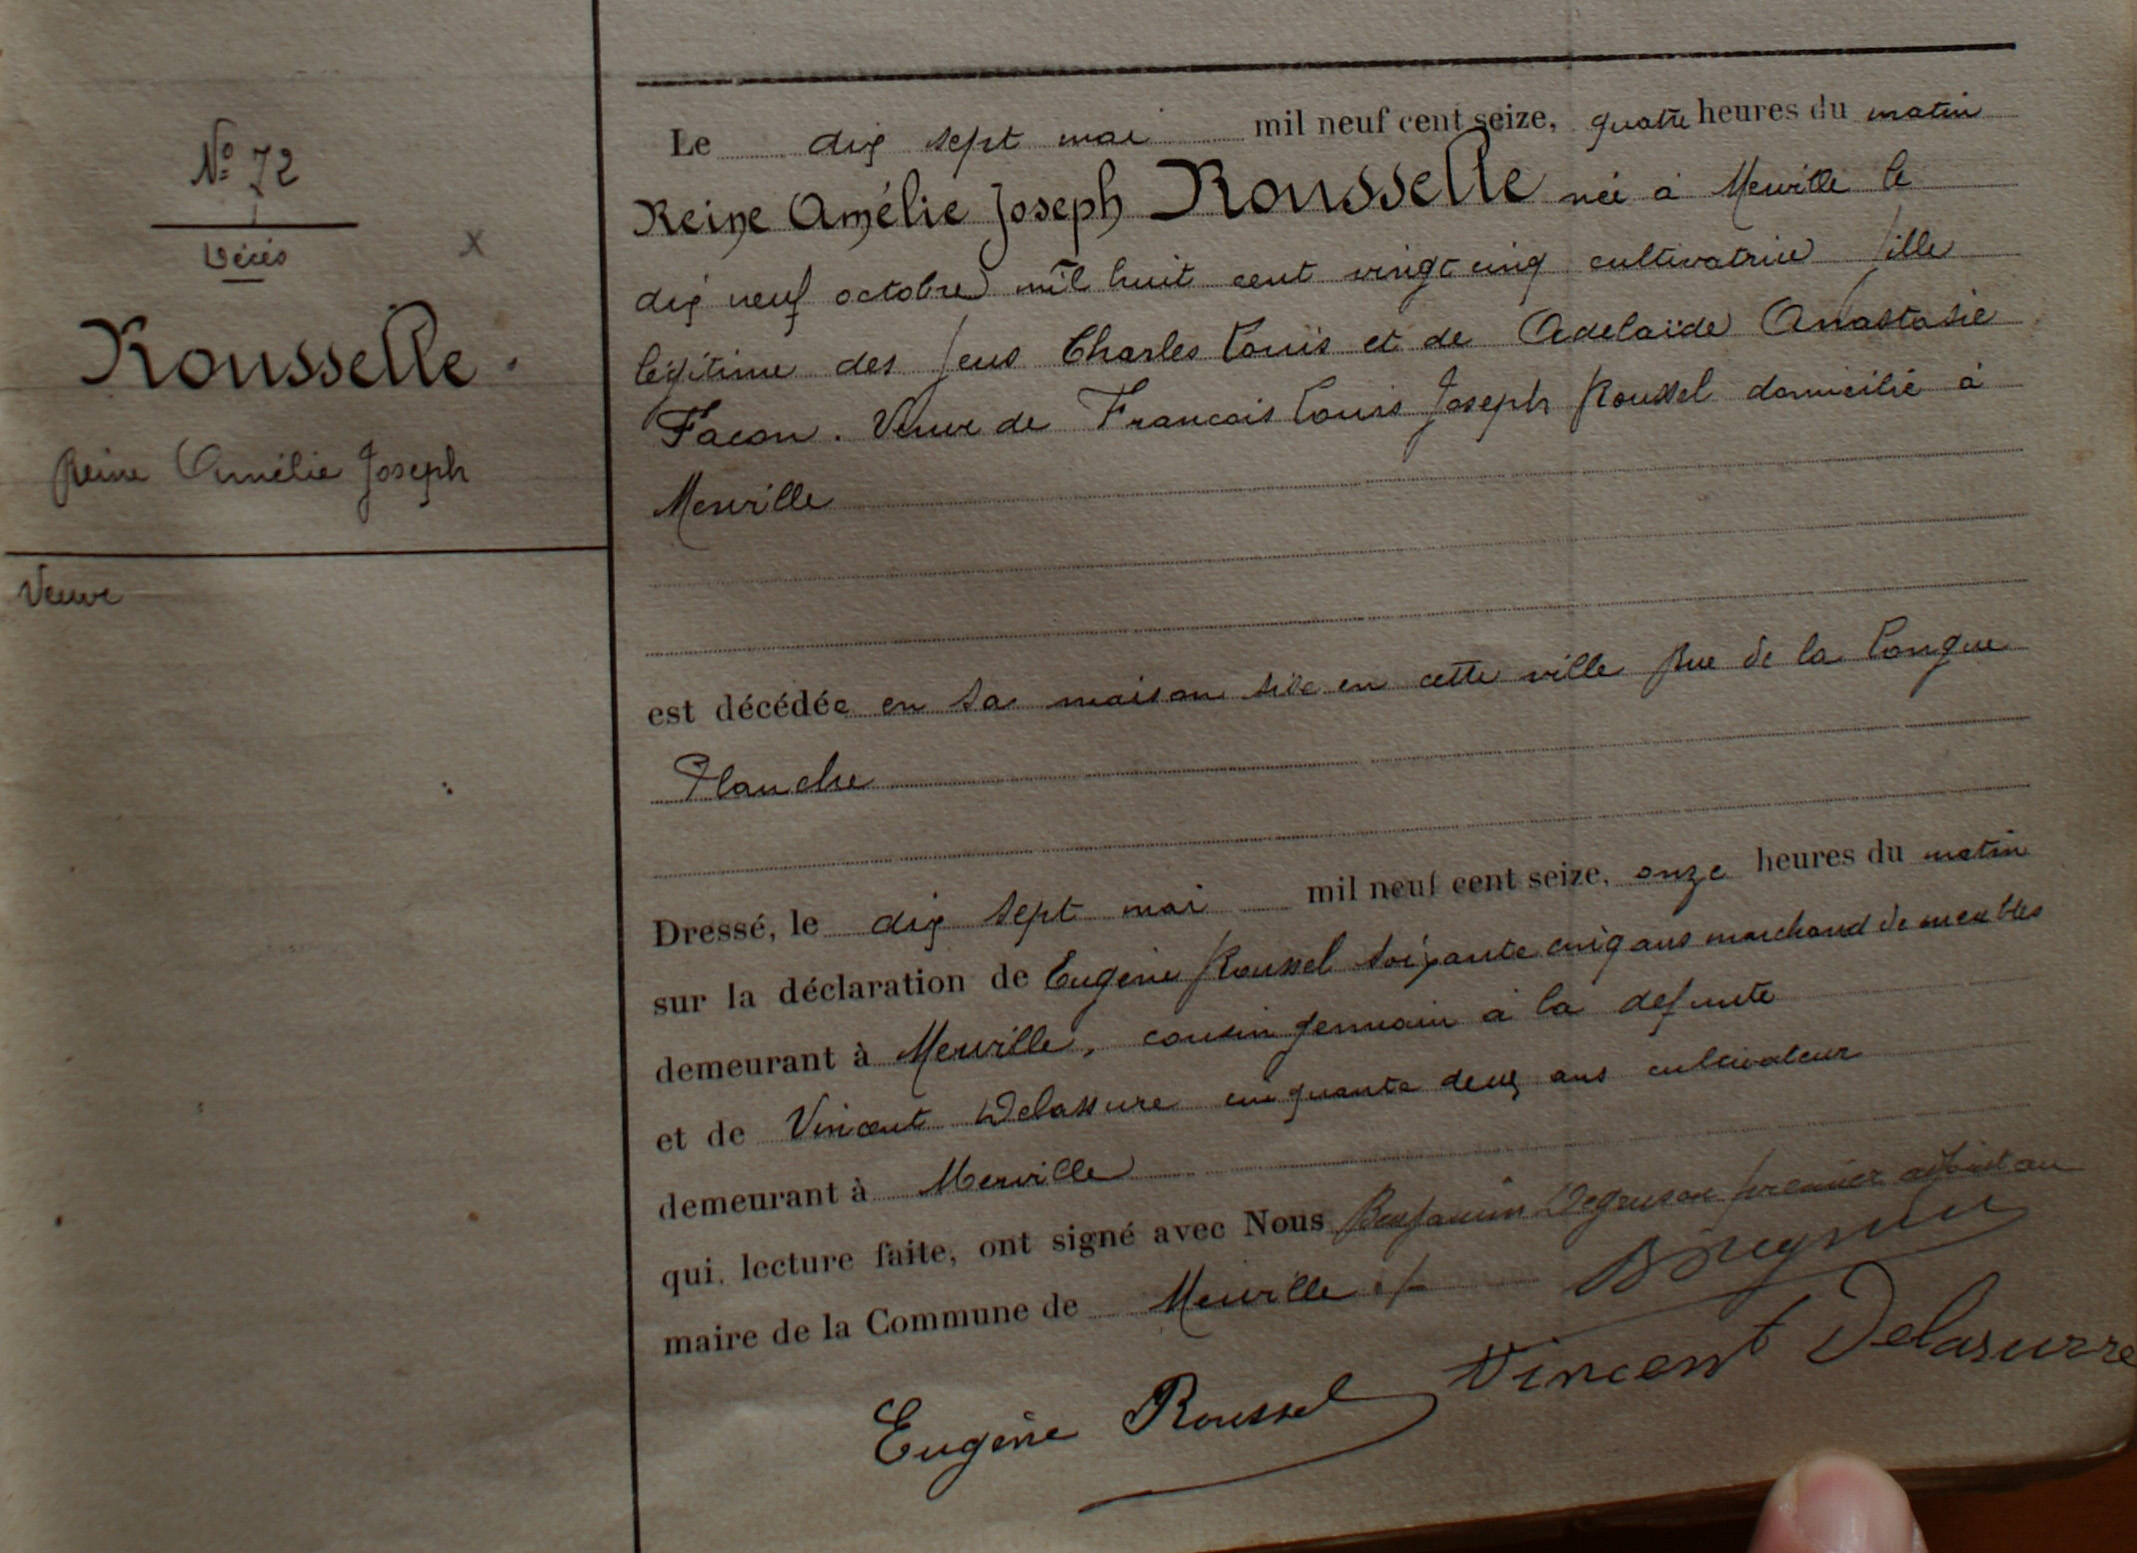 N° 72
Décès
x
Rousselle.
Reine Amélie Joseph
Veuve
Le dix sept mai mil neuf cent seize, quatre heures du matin
Reine Amélie Joseph Rousselle née à Merville le
dix neuf octobre mil huit cent vingt cinq cultivatrice fille
légitime des feus Charles Louis et de Adelaïde Anastasie
Facon. Veuve de Francois Louis Joseph Roussel domicilié à
Merville
est décédée en sa maison sise en cette ville Rue de la Longue
Planche
Dressé, le dix sept mai mil neuf cent seize, onze heures du matin
sur la déclaration de Eugène Roussel soixante cinq ans marchand de meubles
demeurant à Merville, cousin germain à la defunte
et de Vincent Delassure cinquante deux ans cultivateur
demeurant à Merville
qui, lecture faite, ont signé avec Nous Benjamin premier adjoint au
maire de la Commune de Merville ./.
Eugène Roussel Vincent Delasurre